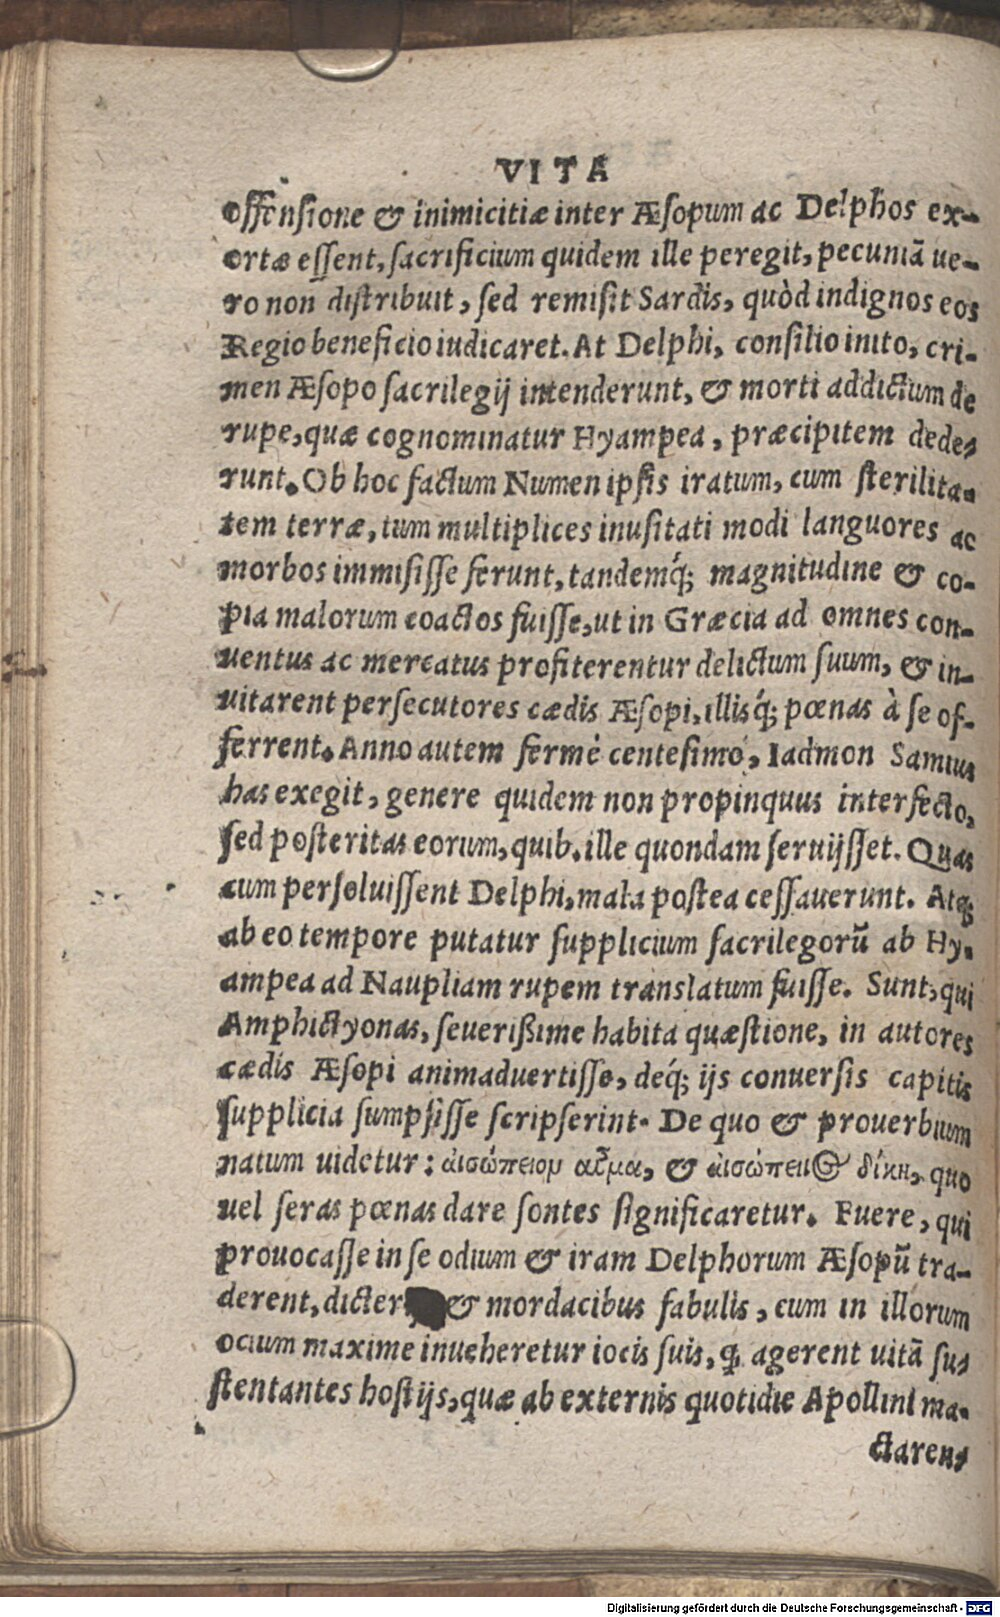 VITA
offensione & inimicitiæ inter Æsopum ac Delphos ex-
ortæ essent, sacrificium quidem ille peregit, pecuniā ue-
ro non distribuit, sed remisit Sardis, quòd indignos eos
Regio beneficio iudicaret. At Delphi, consilio inito, cri-
men Æsopo sacrilegij intenderunt, & morti addictum de
rupe, quæ cognominatur Hyampea, præcipitem dede-
runt. Ob hoc factum Numen ipsis iratum, cum sterilita-
tem terræ, tum multiplices inusitati modi languores ac
morbos immisisse ferunt, tandemq́; magnitudine & co-
pia malorum coactos fuisse, ut in Græcia ad omnes con-
uentus ac mercatus profiterentur delictum suum, & in-
uitarent persecutores cædis Æsopi, illisq́; pœnas à se of-
ferrent. Anno autem fermè centesimo, Iadmon Samius
has exegit, genere quidem non propinquus interfecto,
sed posteritas eorum, quib. ille quondam seruijsset. Quas
cum persoluissent Delphi, mala postea cessauerunt. Atq;
ab eo tempore putatur supplicium sacrilegorū ab Hy-
ampea ad Naupliam rupem translatum fuisse. Sunt, qui
Amphictyonas, seuerißime habita quæstione, in autores
cædis Æsopi animaduertisse, deq́; ijs conuersis capitis
supplicia sumpsisse scripserint. De quo & prouerbium
natum uidetur: ἀισώπειον αἷμα, & ἀισώπειος δίκη, quo
uel seras pœnas dare sontes significaretur. Fuere, qui
prouocasse in se odium & iram Delphorum Æsopū tra-
derent, dicter & mordacibus fabulis, cum in illorum
ocium maxime inueheretur iocis suis, ꝙ agerent uitā su-
stentantes hostijs, quæ ab externis quotidie Apollini ma-
ctaren-
Digitalisierung gefördert durch die Deutsche Forschungsgemeinschaft - DFG